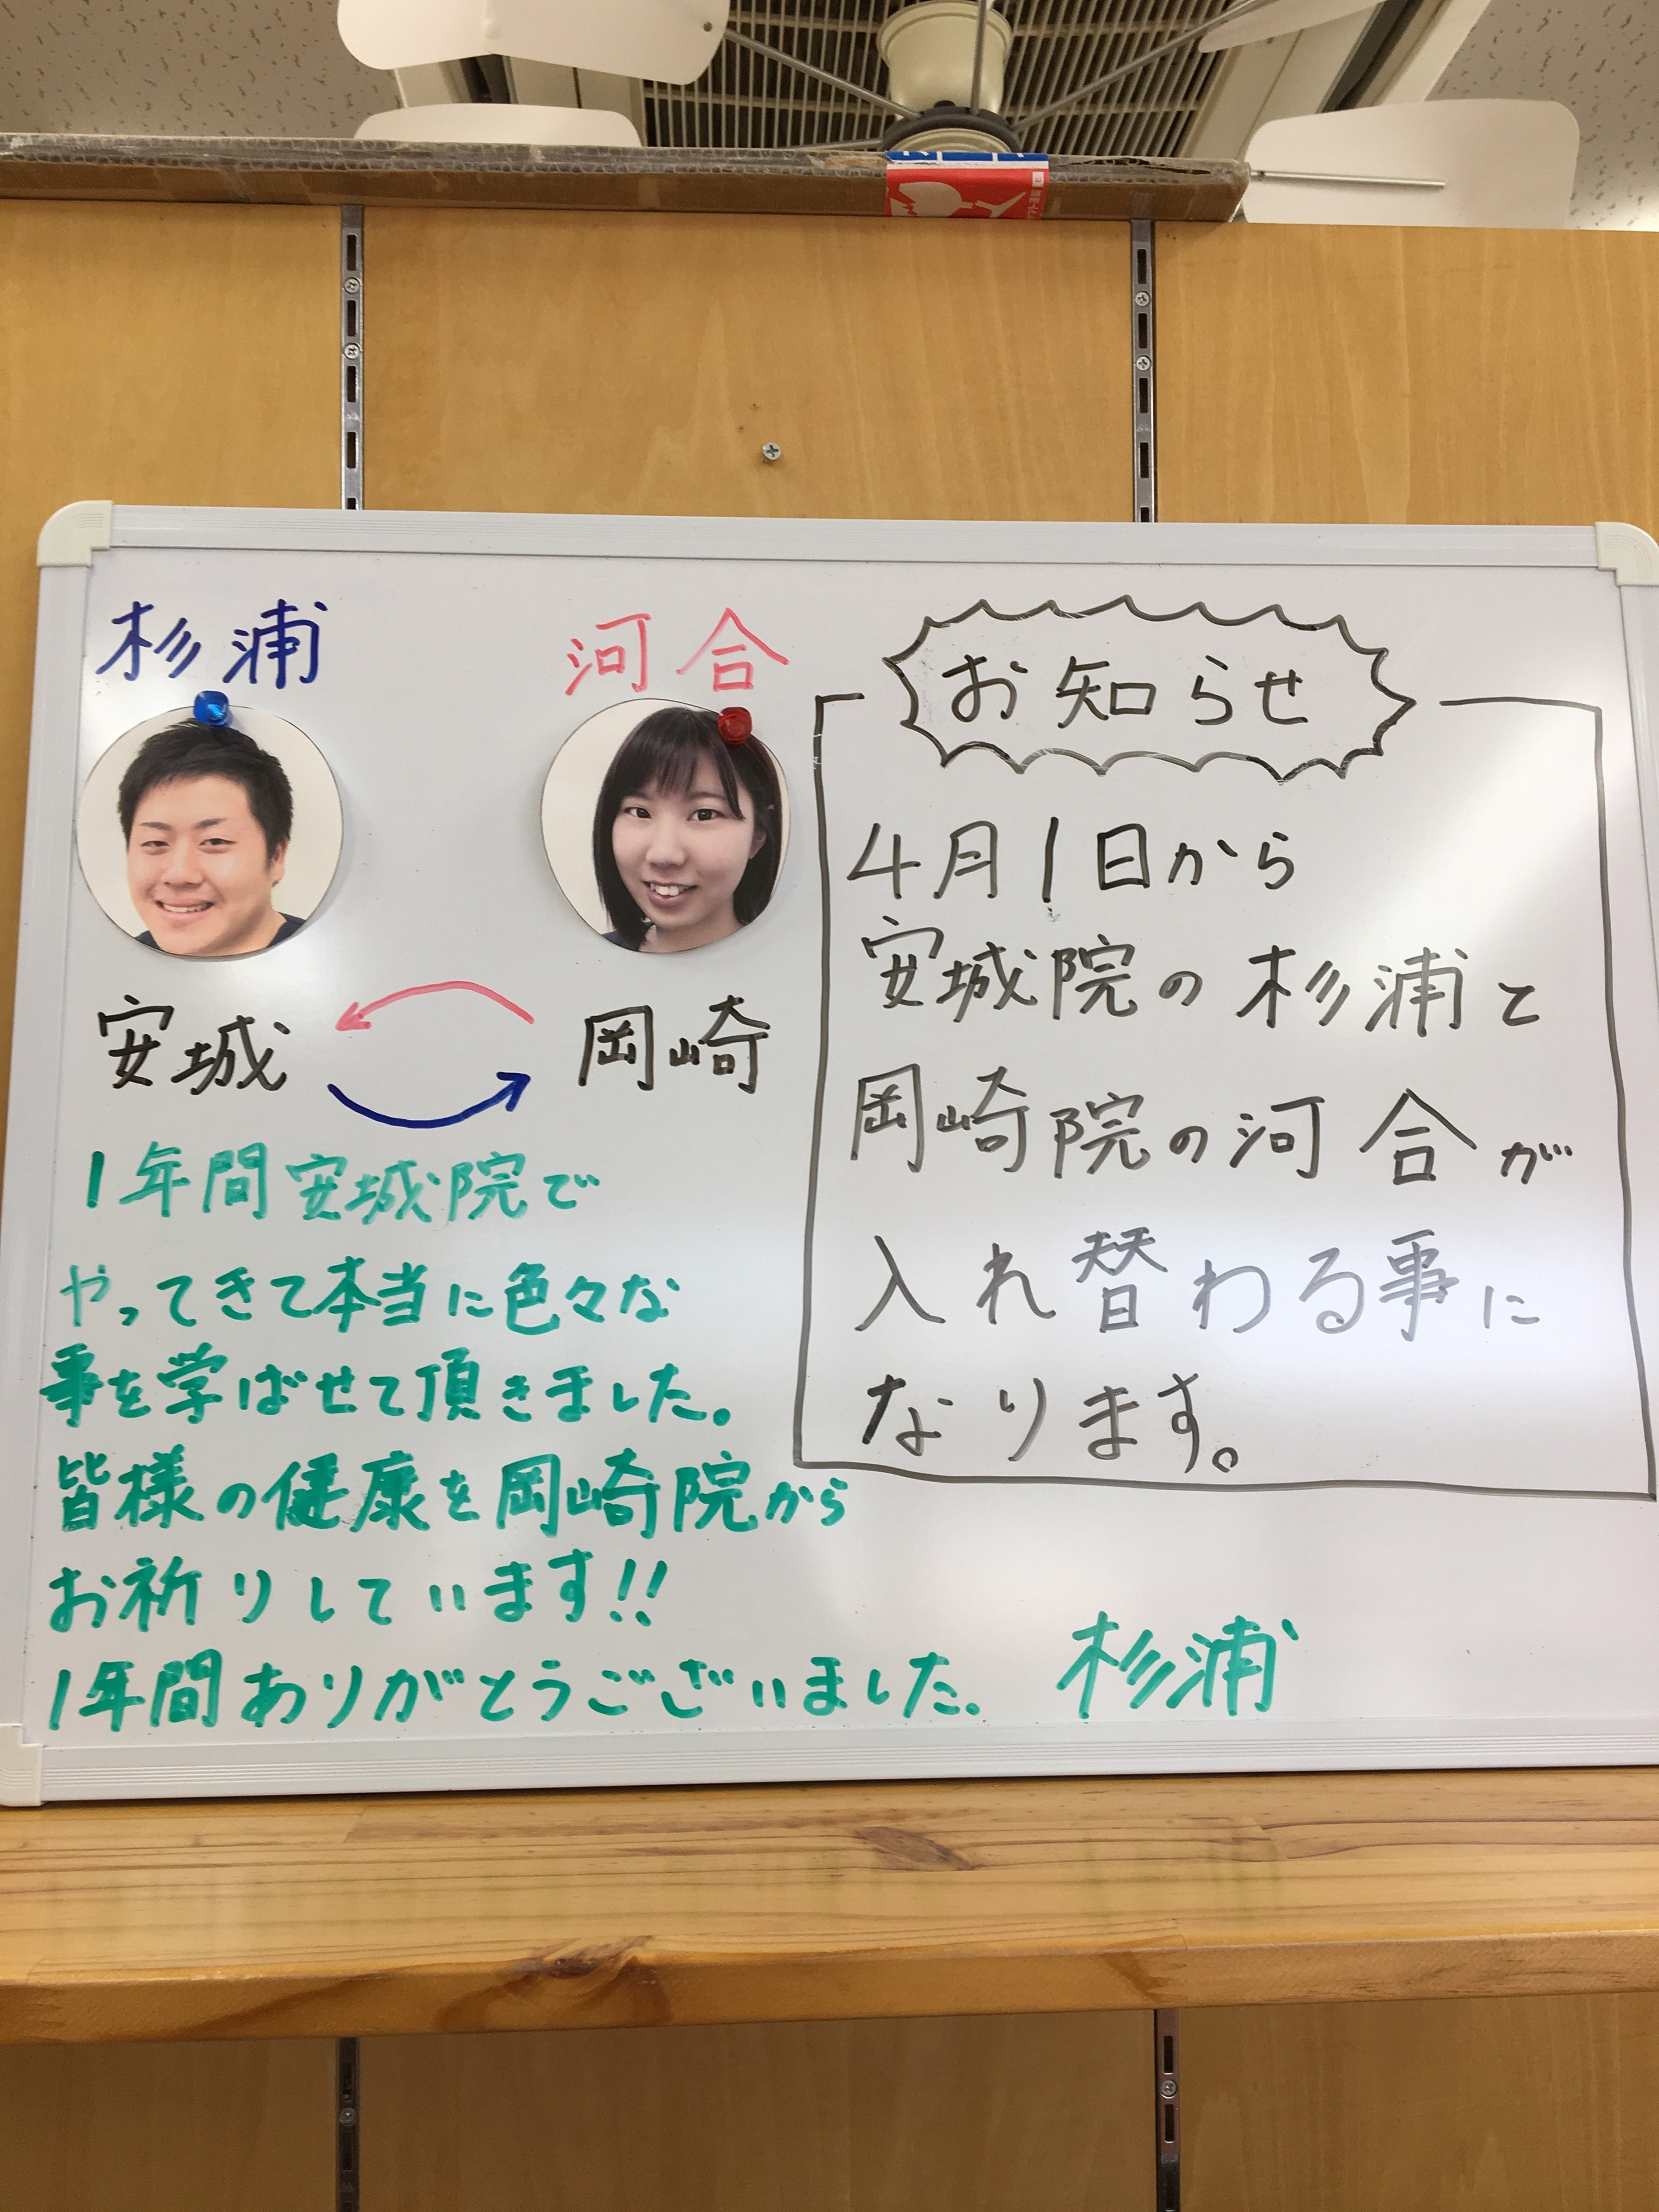 杉浦
河合
安城
岡崎
お知らせ
4月1日から
安城院の杉浦と
岡崎院の河合が
入れ替わる事に
なります。
1年間安城院で
やってきて本当に色々な
事を学ばせて頂きました。
皆様の健康を岡崎院から
お祈りしています!!
1年間ありがとうございました。
杉浦